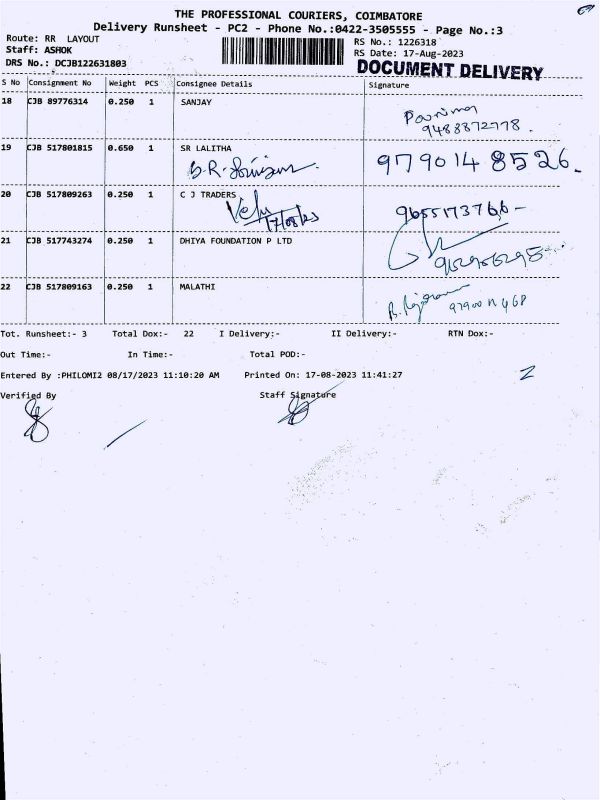 THE PROFESSIONAL COURIERS, COIMBATORE
Delivery Runsheet - PC2 - Phone No.:0422-3505555 - Page No.:3
Route: RR LAYOUT
RS No.: 1226318
Staff: ASHOK
RS Date: 17-Aug-2023
DRS No.: DCJB122631803
DOCUMENT DELIVERY
S No Consignment No Weight PCS Consignee Details Signature
18 CJB 89776314 0.250 1 SANJAY
9488872778.
19 CJB 517801815 0.650 1 SR LALITHA
9790148526.
20 CJB 517809263 0.250 1 C J TRADERS
17/08/23
9655173766 -
21 CJB 517743274 0.250 1 DHIYA FOUNDATION P LTD
22 CJB 517809163 0.250 1 MALATHI
Tot. Runsheet:- 3 Total Dox:- 22 I Delivery:- II Delivery:- RTN Dox:-
Out Time:- In Time:- Total POD:-
Entered By :PHILOMI2 08/17/2023 11:10:20 AM Printed On: 17-08-2023 11:41:27
Verified By Staff Signature